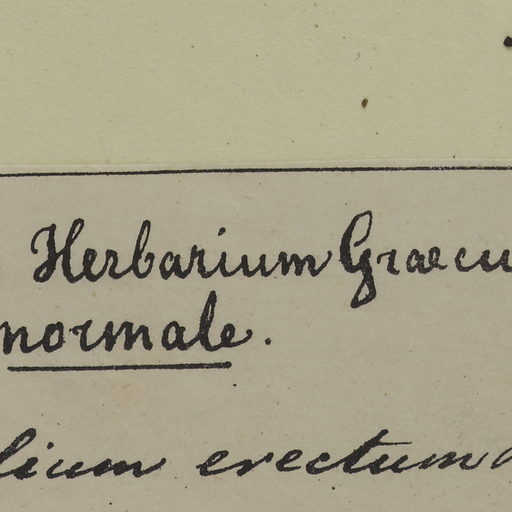 Herbarium Graecu
normale.
lium erectum